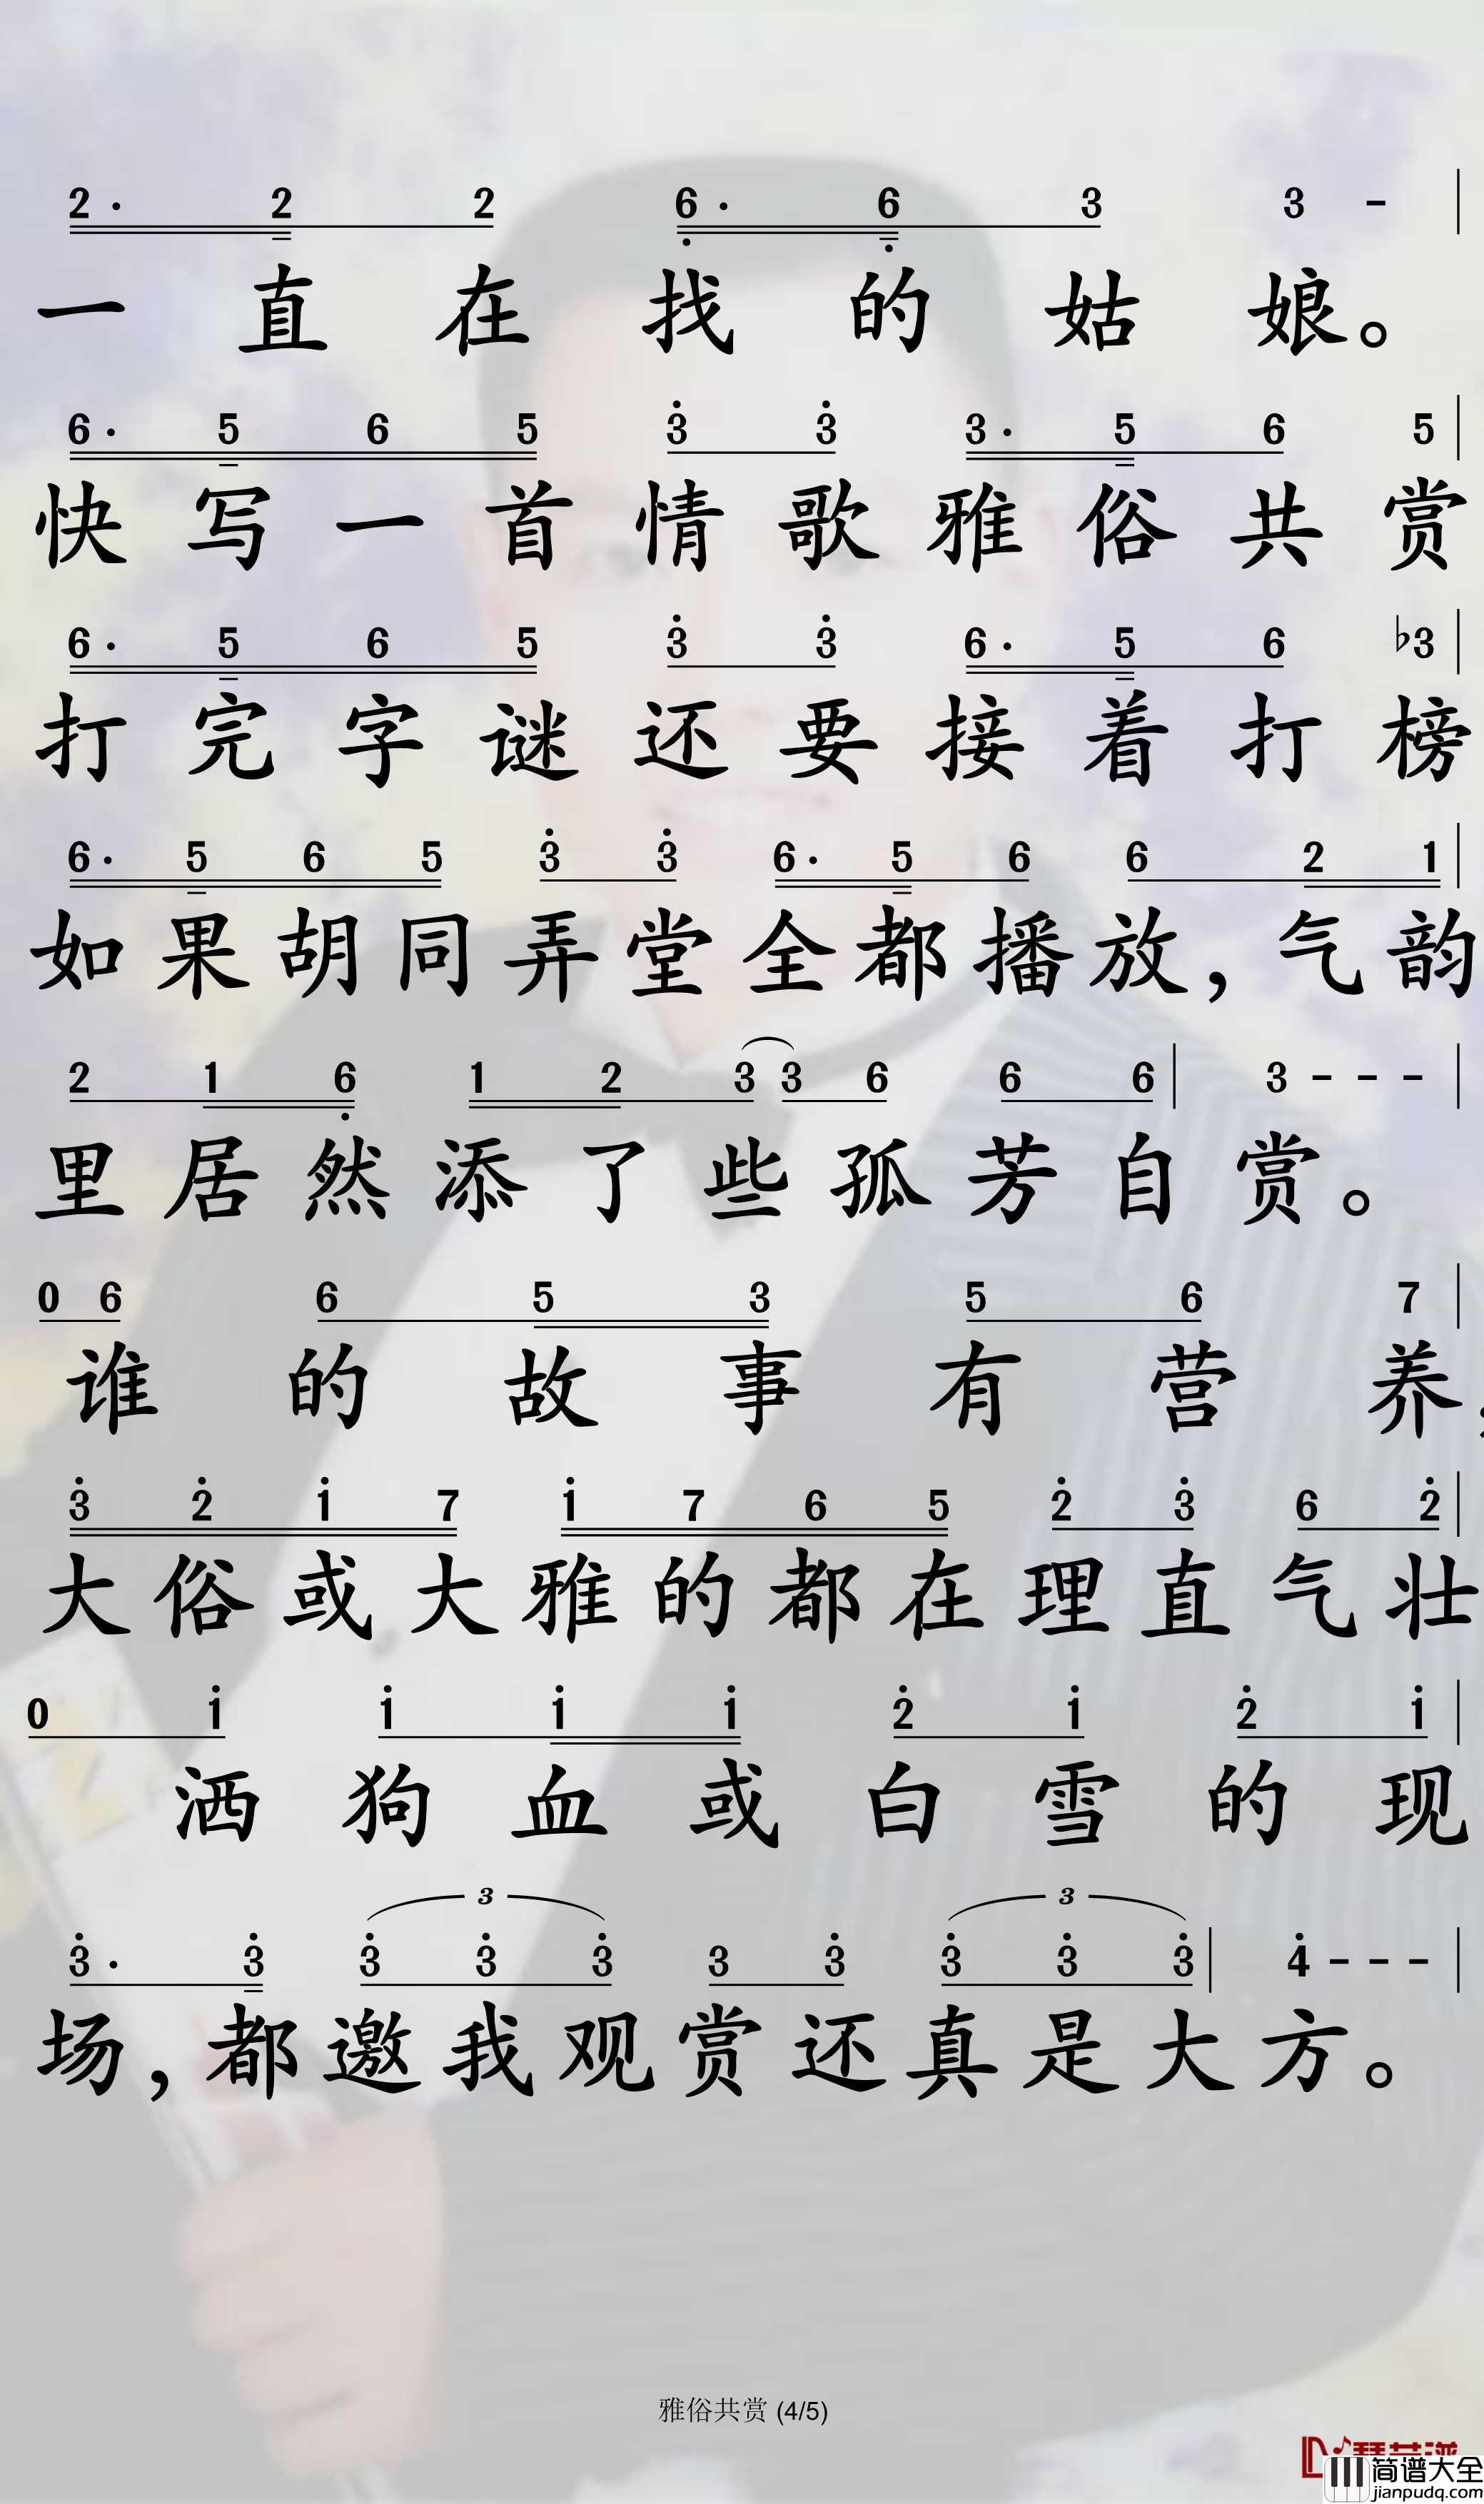 2· 2 2 6· 6 3 3 -
一直在找的姑娘。
6· 5 6 5 3 3 3· 5 6 5
快写一首情歌雅俗共赏
6· 5 6 5 3 3 6· 5 6 ♭3
打完字谜还要接着打榜
6· 5 6 5 3 3 6· 5 6 6 2 1
如果胡同弄堂全都播放，气韵
2 1 6 1 2 3 3 6 6 6 3 - - -
里居然添了些孤芳自赏。
0 6 6 5 3 5 6 7
谁的故事有营养，
3 2 1 7 1 7 6 5 2 3 6 2
大俗或大雅的都在理直气壮
0 1 1 1 1 2 1 2 1
洒狗血或白雪的现
3 3
3· 3 3 3 3 3 3 3 3 3 4 - - -
场，都邀我观赏还真是大方。
雅俗共赏 (4/5)
简谱大全
jianpudq.com